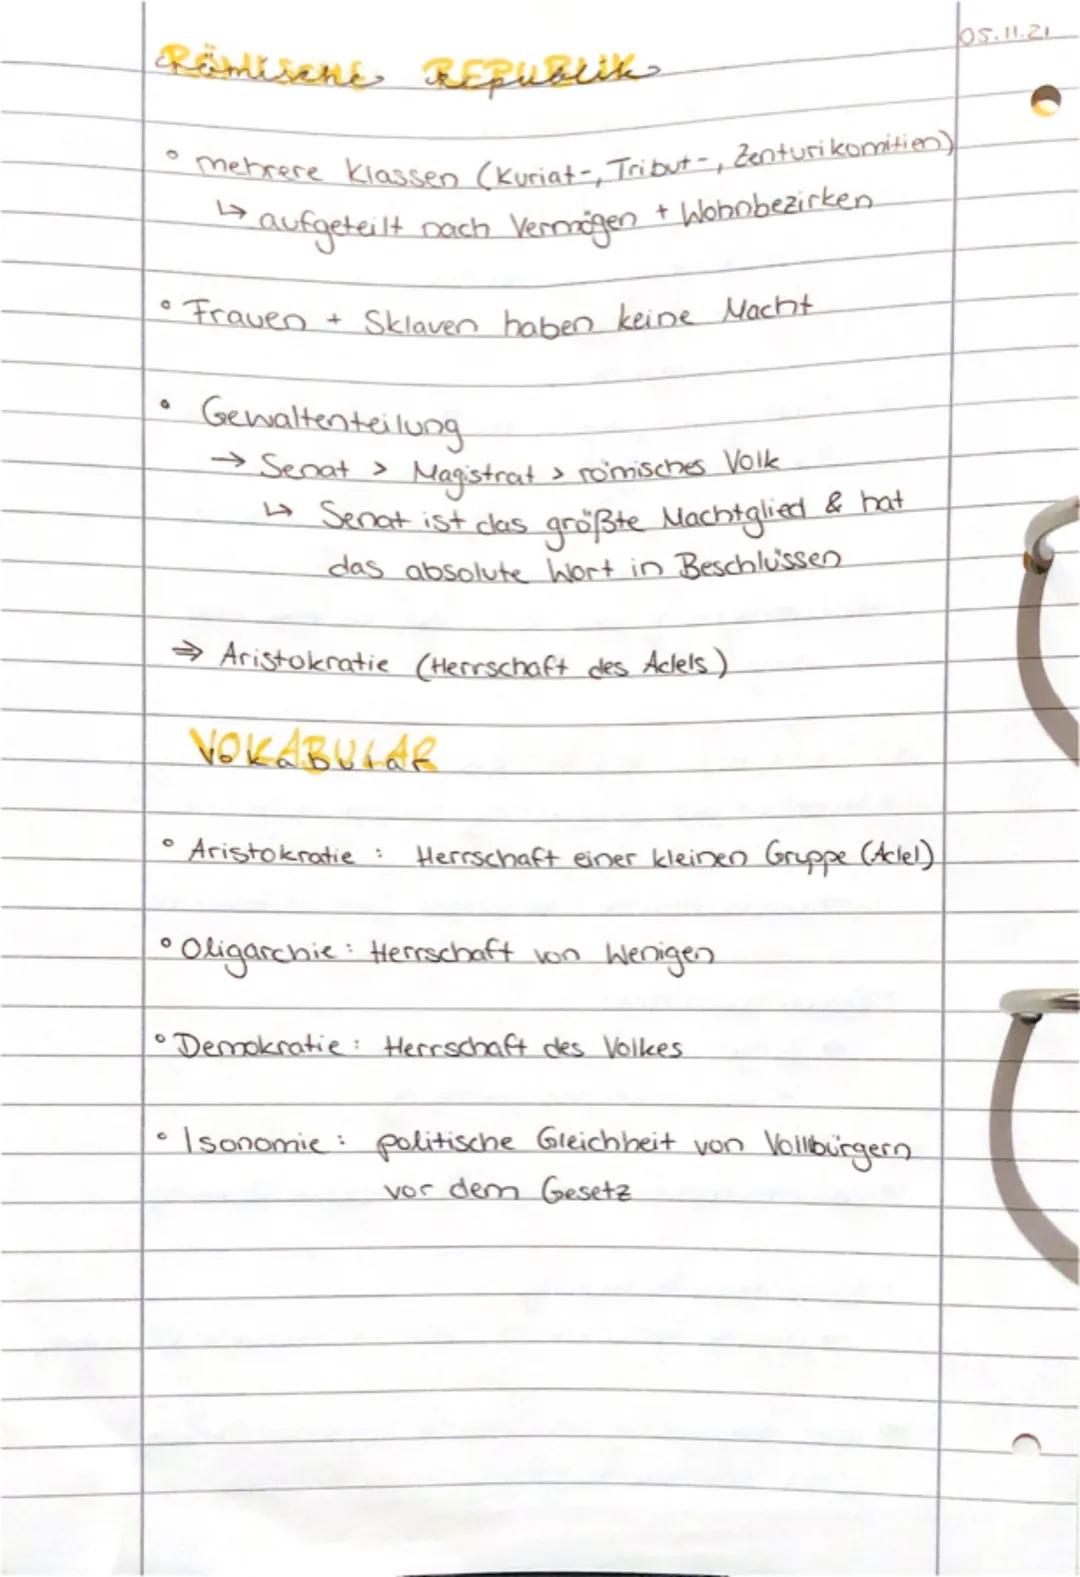 05.11.21
Römische Republik
° mehrere Klassen (Kuriat-, Tribut-, Zenturikomitien)
↳ aufgeteilt nach Vermögen + Wohnbezirken
° Frauen + Sklaven haben keine Macht
° Gewaltenteilung
→ Senat > Magistrat > römisches Volk
↳ Senat ist das größte Machtglied & hat
das absolute Wort in Beschlüssen
⇒ Aristokratie (Herrschaft des Adels)
VOKABULAR
° Aristokratie : Herrschaft einer kleinen Gruppe (Adel)
° Oligarchie : Herrschaft von Wenigen
° Demokratie : Herrschaft des Volkes
° Isonomie : politische Gleichheit von Vollbürgern
vor dem Gesetz